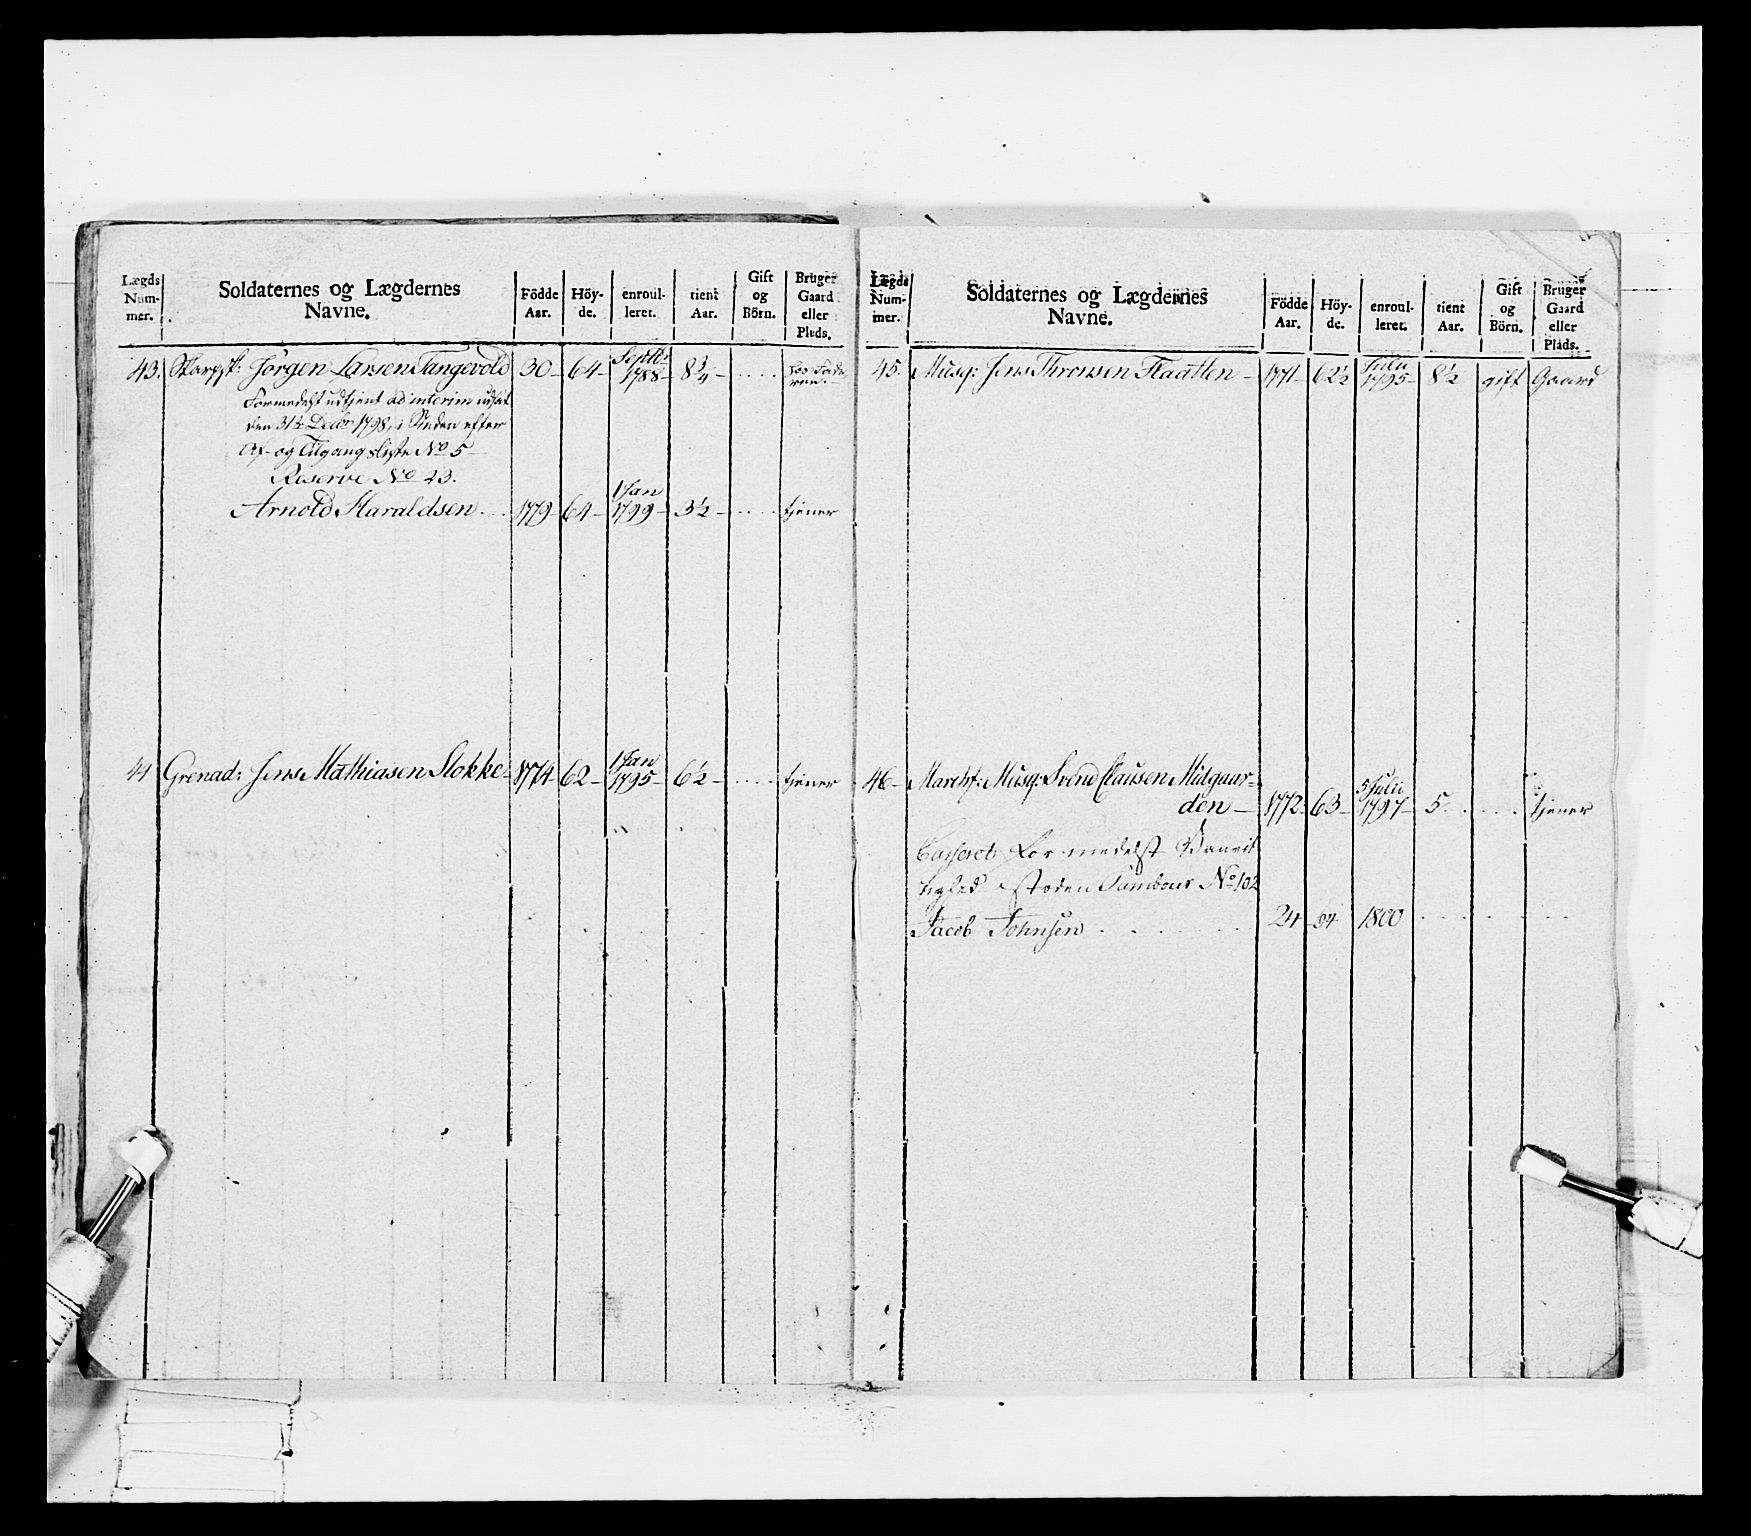 Lægds Num- mer. Soldaternes og Lægdernes Navne. Födde Aar. Höy- de. enroul- leret. tient Aar. Gift og Börn. Bruger Gaard eller Plads.
43. Skarpsk: Jörgen Larsen Tangevold 30 – 64 – Septbr 1788 – 8¾ – .... hos Fade ren.
Formedelst udtjent ad interim udsat
den 31te Decbr 1798, i Steden efter
Af- og Tilgangsliste No 5
Reserve No 23.
Arnold Haraldsen . . 1779 64 – 1 Jan 1799 – 3½ – .... tjener
44 Grenad: Jens Mathiasen Stokke – 1774 62 – 1 Jan 1795 – 6½ – .... tjener
Lægds Num- mer. Soldaternes og Lægdernes Navne. Födde Aar. Höy- de. enroul- leret. tient Aar. Gift og Börn. Bruger Gaard eller Plads.
45. Musq: Jens Thronsen Flaatten – 1771 – 62½ Julii 1795 – 8½ gift Gaard
46 – Musq: Svend Clausen Midgaar-
den – 1772 – 63 – 5 Julii 1797 – 5 . . . . tjener
Casseret for medelst Vanvit
tighed i Stæden Tambour No 102
Jacob Johnsen . . . . . 24 – 64 – 1800 . . . . . . .